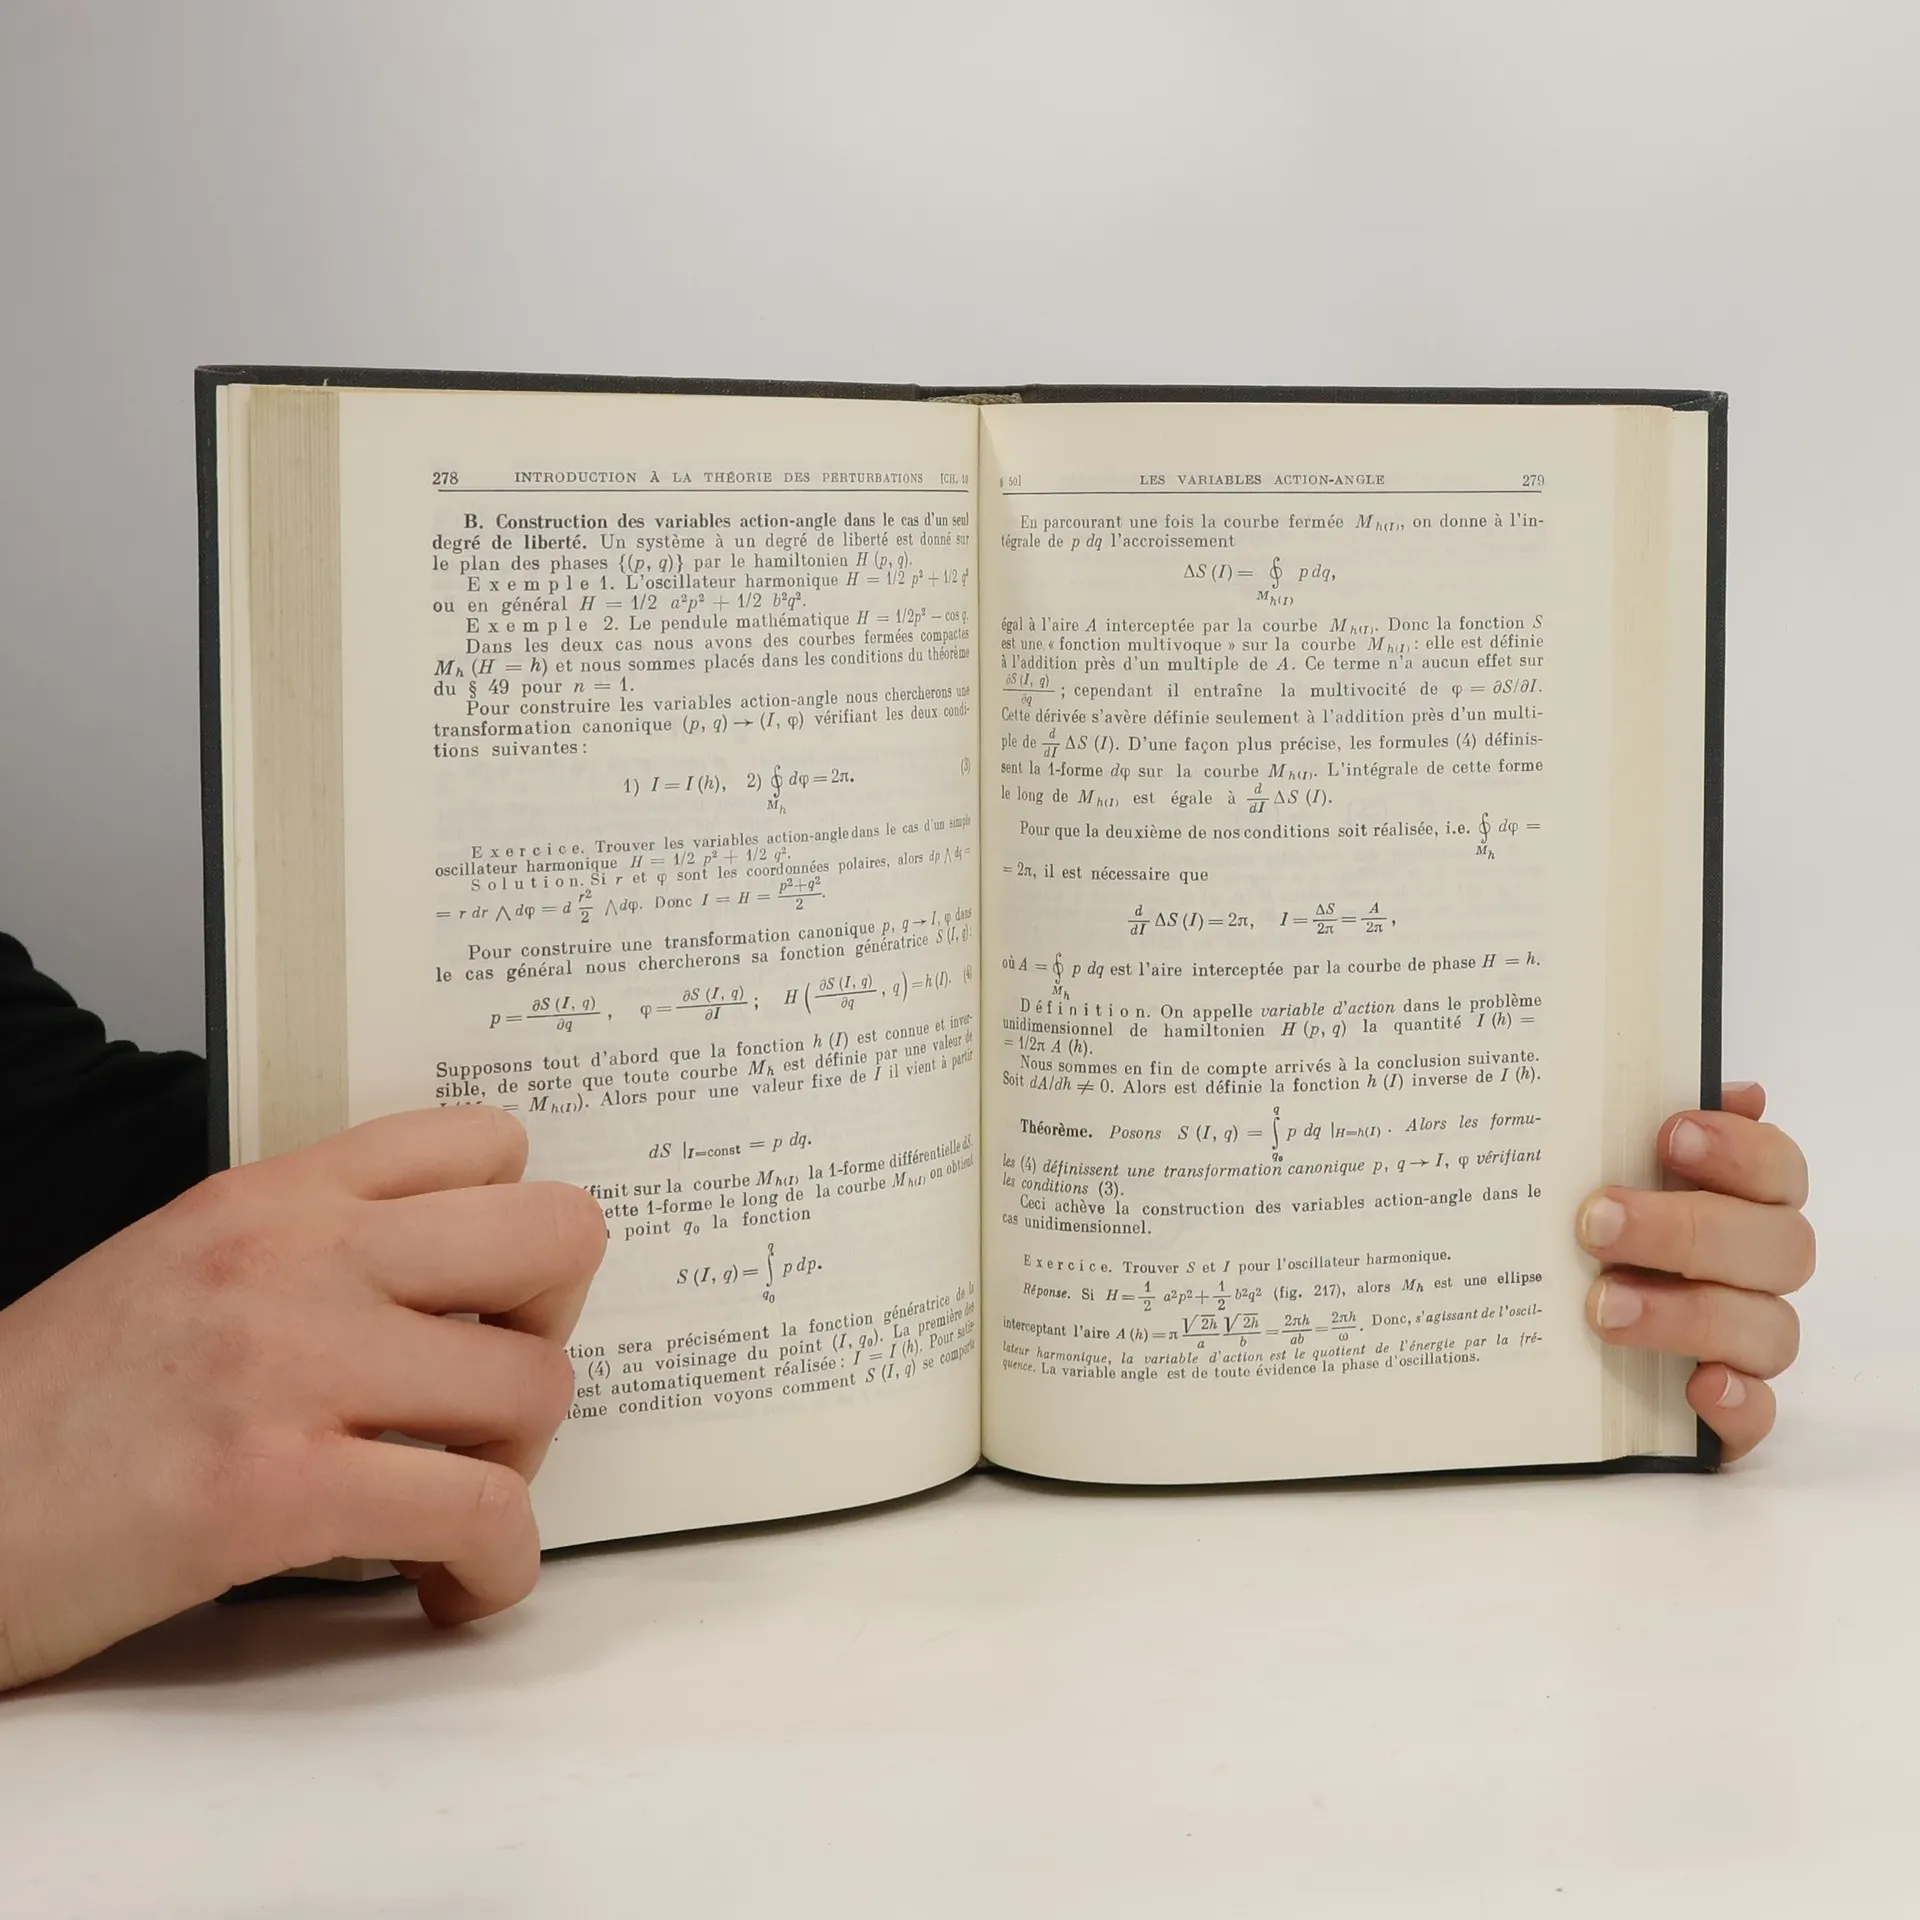 278 INTRODUCTION À LA THÉORIE DES PERTURBATIONS [CH. 10
B. Construction des variables action-angle dans le cas d'un seul
degré de liberté. Un système à un degré de liberté est donné sur
le plan des phases {(p, q)} par le hamiltonien H (p, q).
Exemple 1. L'oscillateur harmonique H = 1/2 p² + 1/2 q²
ou en général H = 1/2 a²p² + 1/2 b²q².
Exemple 2. Le pendule mathématique H = 1/2p² — cos q.
Dans les deux cas nous avons des courbes fermées compactes
M_h (H = h) et nous sommes placés dans les conditions du théorème
du § 49 pour n = 1.
Pour construire les variables action-angle nous chercherons une
transformation canonique (p, q) → (I, φ) vérifiant les deux condi-
tions suivantes:
1) I = I (h), 2) ∮_{M_h} dφ = 2π. (3)
Exercice. Trouver les variables action-angle dans le cas d'un simple
oscillateur harmonique H = 1/2 p² + 1/2 q².
Solution. Si r et φ sont les coordonnées polaires, alors dp ∧ dq =
= r dr ∧ dφ = d r²/2 ∧ dφ. Donc I = H = (p²+q²)/2.
Pour construire une transformation canonique p, q → I, φ dans
le cas général nous chercherons sa fonction génératrice S (I, q):
p = ∂S (I, q)/∂q, φ = ∂S (I, q)/∂I; H (∂S (I, q)/∂q, q) = h (I). (4)
Supposons tout d'abord que la fonction h (I) est connue et inver-
sible, de sorte que toute courbe M_h est définie par une valeur de
= M_{h(I)}). Alors pour une valeur fixe de I il vient à partir
dS |_{I=const} = p dq.
finit sur la courbe M_{h(I)} la 1-forme différentielle dS.
ette 1-forme le long de la courbe M_{h(I)} on obtient
point q₀ la fonction
S (I, q) = ∫_{q₀}^{q} p dp.
tion sera précisément la fonction génératrice de la
(4) au voisinage du point (I, q₀). La première des
est automatiquement réalisée: I = I (h). Pour satis-
ième condition voyons comment S (I, q) se comporte
§ 50] LES VARIABLES ACTION-ANGLE 279
En parcourant une fois la courbe fermée M_{h(I)}, on donne à l'in-
tégrale de p dq l'accroissement
ΔS (I) = ∮_{M_{h(I)}} p dq,
égal à l'aire A interceptée par la courbe M_{h(I)}. Donc la fonction S
est une « fonction multivoque » sur la courbe M_{h(I)}: elle est définie
à l'addition près d'un multiple de A. Ce terme n'a aucun effet sur
∂S (I, q)/∂q; cependant il entraîne la multivocité de φ = ∂S/∂I.
Cette dérivée s'avère définie seulement à l'addition près d'un multi-
ple de d/dI ΔS (I). D'une façon plus précise, les formules (4) définis-
sent la 1-forme dφ sur la courbe M_{h(I)}. L'intégrale de cette forme
le long de M_{h(I)} est égale à d/dI ΔS (I).
Pour que la deuxième de nos conditions soit réalisée, i.e. ∮_{M_h} dφ =
= 2π, il est nécessaire que
d/dI ΔS (I) = 2π, I = ΔS/2π = A/2π,
où A = ∮_{M_h} p dq est l'aire interceptée par la courbe de phase H = h.
Définition. On appelle variable d'action dans le problème
unidimensionnel de hamiltonien H (p, q) la quantité I (h) =
= 1/2π A (h).
Nous sommes en fin de compte arrivés à la conclusion suivante.
Soit dA/dh ≠ 0. Alors est définie la fonction h (I) inverse de I (h).
Théorème. Posons S (I, q) = ∫_{q₀}^{q} p dq |_{H=h(I)}. Alors les formu-
les (4) définissent une transformation canonique p, q → I, φ vérifiant
les conditions (3).
Ceci achève la construction des variables action-angle dans le
cas unidimensionnel.
Exercice. Trouver S et I pour l'oscillateur harmonique.
Réponse. Si H = 1/2 a²p² + 1/2 b²q² (fig. 217), alors M_h est une ellipse
interceptant l'aire A (h) = π √2h/a √2h/b = 2πh/ab = 2πh/ω. Donc, s'agissant de l'oscil-
lateur harmonique, la variable d'action est le quotient de l'énergie par la fré-
quence. La variable angle est de toute évidence la phase d'oscillations.